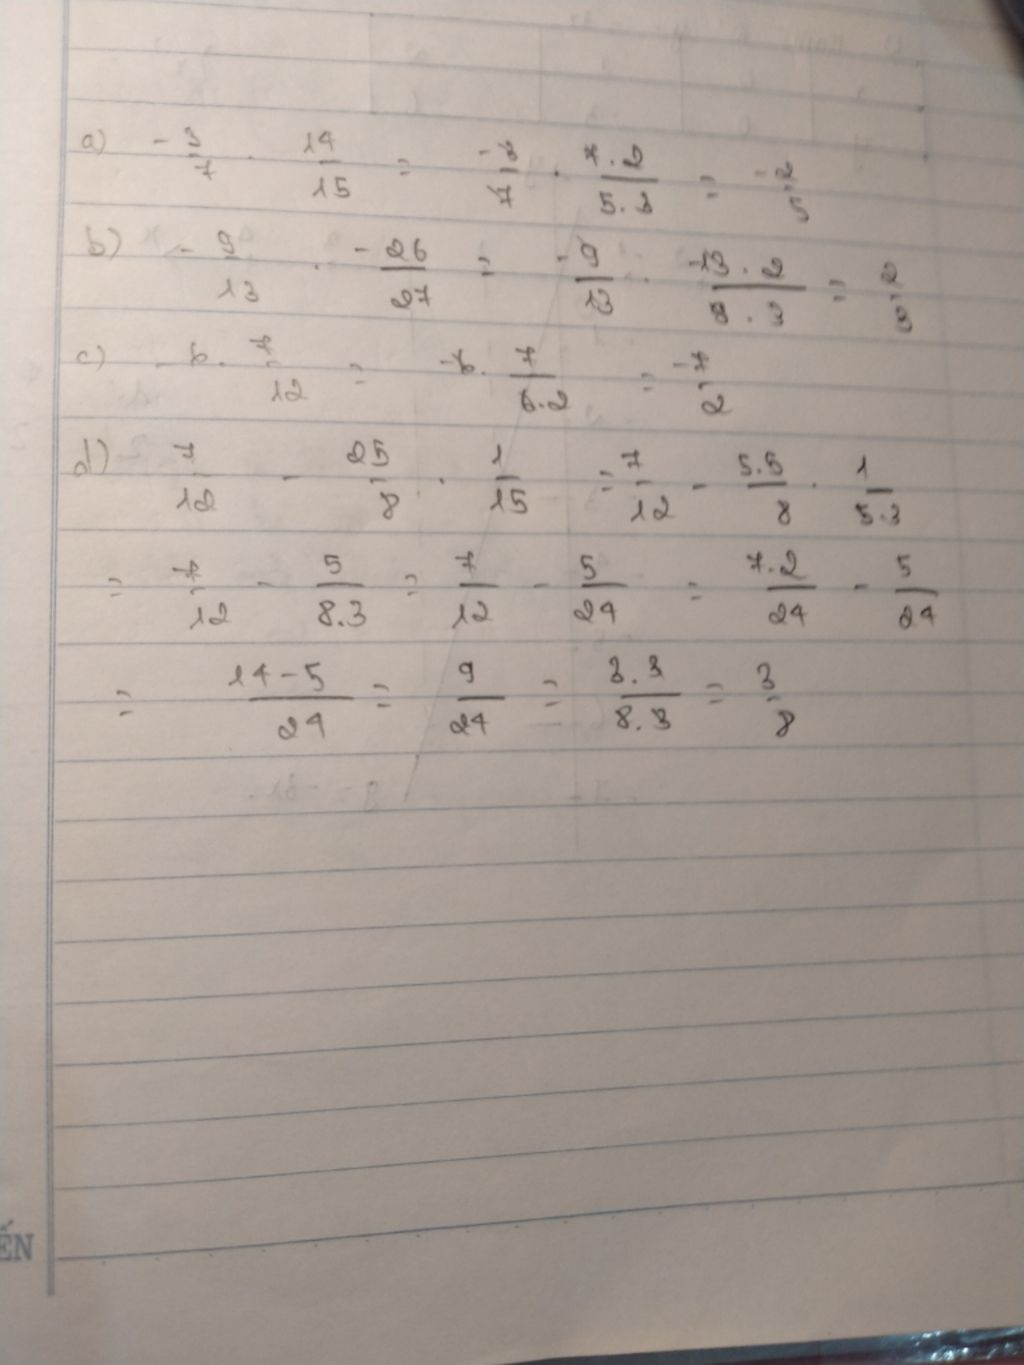 a) -3/7 . 14/15 = -3/7 . 7.2/5.3 = -2/5
b) -9/13 . -26/27 = -9/13 . -13.2/9.3 = 2/3
c) -6 . 7/12 = -6 . 7/6.2 = -7/2
d) 7/12 - 25/8 . 1/15 = 7/12 - 5.5/8 . 1/5.3
= 7/12 - 5/8.3 = 7/12 - 5/24 = 7.2/24 - 5/24
= 14-5/24 = 9/24 = 3.3/8.3 = 3/8
ẾN